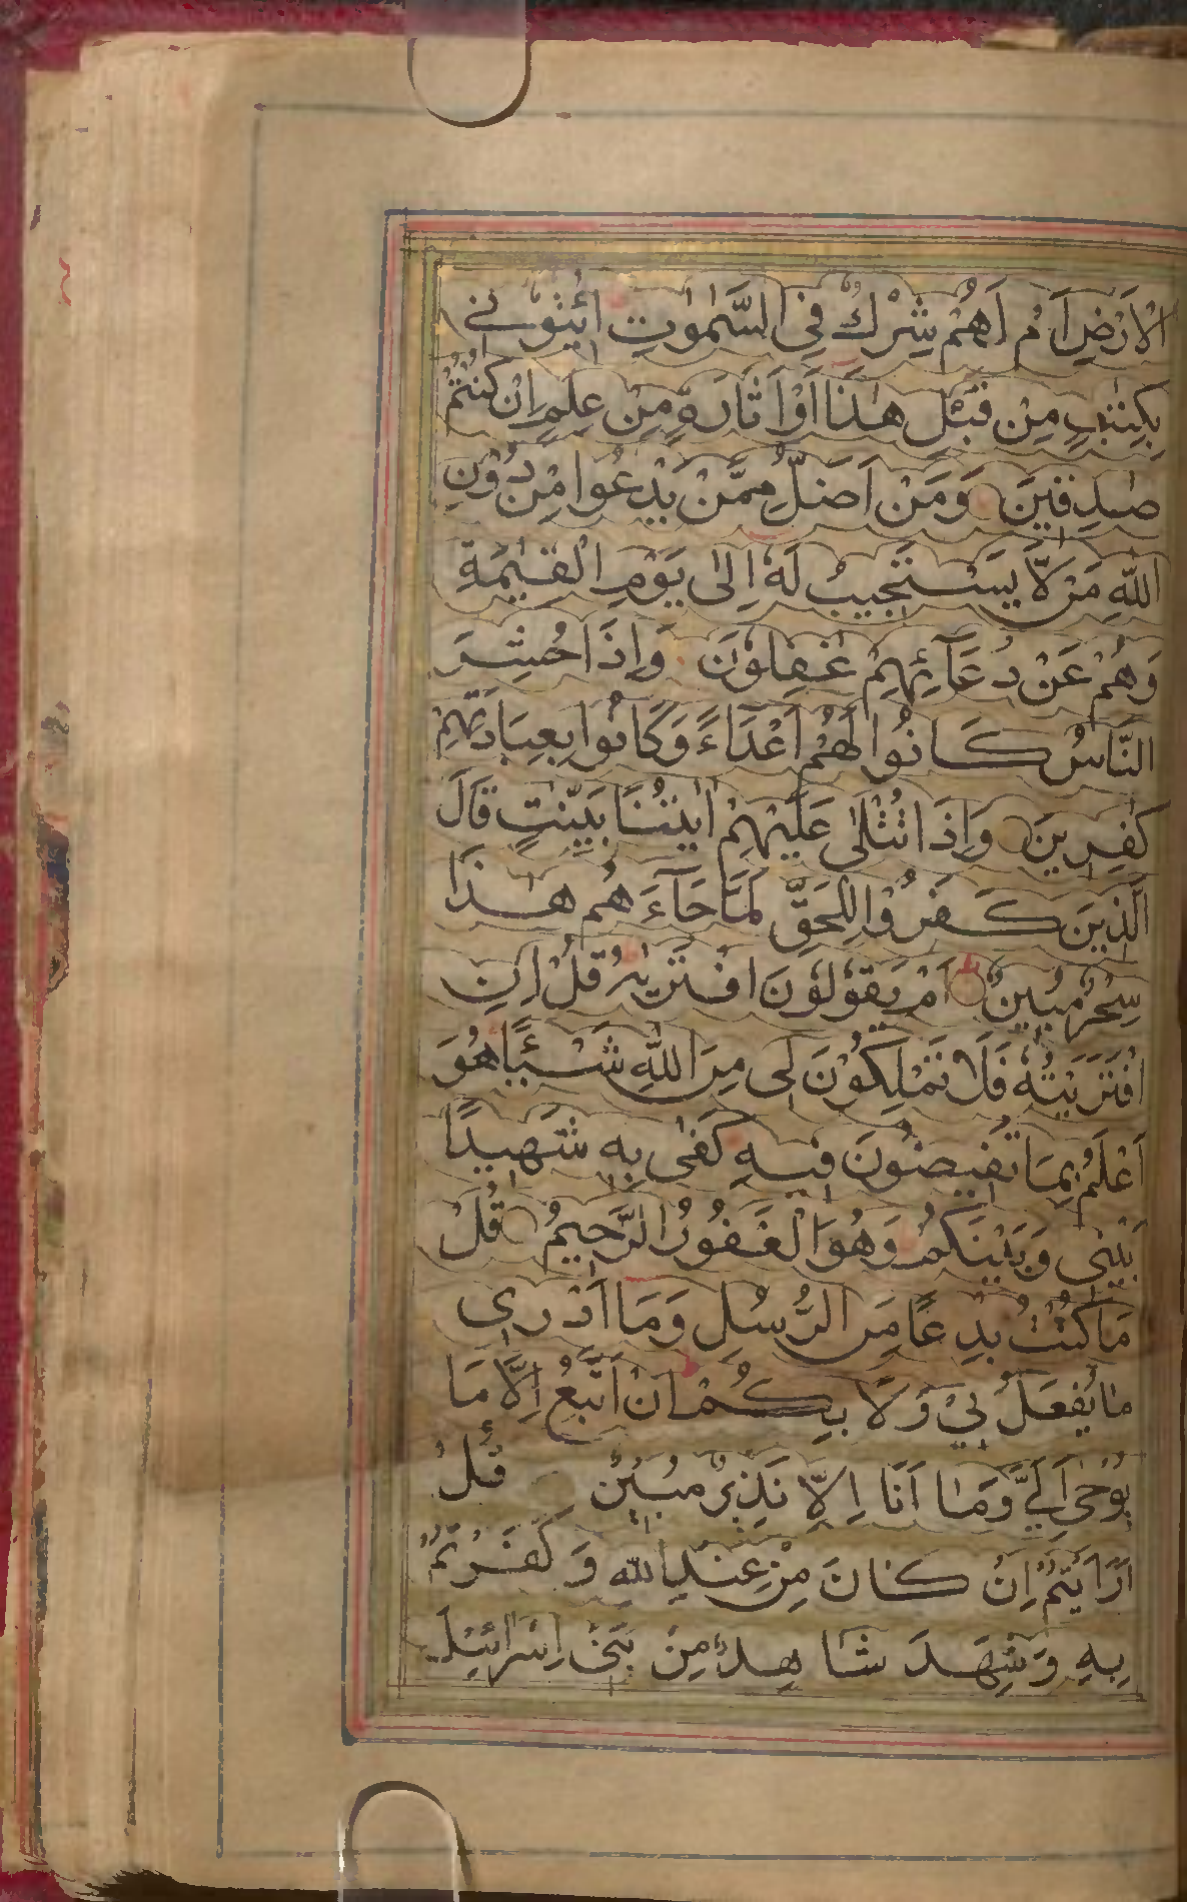 الْاَرْضِ اَمْ لَهُمْ شِرْكٌ فِى السَّمٰوٰتِ اِئْتُوْنِيْ
بِكِتٰبٍ مِنْ قَبْلِ هٰذَا اَوْ اَثَارَةٍ مِنْ عِلْمٍ اِنْ كُنْتُمْ
صٰدِقِيْنَ وَمَنْ اَضَلُّ مِمَّنْ يَدْعُوا مِنْ دُوْنِ
اللّٰهِ مَنْ لَّا يَسْتَجِيْبُ لَهٗ اِلٰى يَوْمِ الْقِيٰمَةِ
وَهُمْ عَنْ دُعَآئِهِمْ غٰفِلُوْنَ وَاِذَا حُشِرَ
النَّاسُ كَانُوا لَهُمْ اَعْدَاءً وَكَانُوا بِعِبَادَتِهِمْ
كٰفِرِيْنَ وَاِذَا تُتْلٰى عَلَيْهِمْ اٰيٰتُنَا بَيِّنٰتٍ قَالَ
الَّذِيْنَ كَفَرُوْا لِلْحَقِّ لَمَّا جَآءَ هُمْ هٰذَا
سِحْرٌ مُّبِيْنٌ اَمْ يَقُوْلُوْنَ افْتَرٰىهُ قُلْ اِنِ
افْتَرَيْتُهٗ فَلَا تَمْلِكُوْنَ لِى مِنَ اللّٰهِ شَيْـًٔا هُوَ
اَعْلَمُ بِمَا تُفِيْضُوْنَ فِيْهِ كَفٰى بِهٖ شَهِيْدًا
بَيْنِى وَبَيْنَكُمْ وَهُوَ الْغَفُوْرُ الرَّحِيْمُ قُلْ
مَا كُنْتُ بِدْعًا مِنَ الرُّسُلِ وَمَا اَدْرِى
مَا يُفْعَلُ بِيْ وَلَا بِكُمْ اِنْ اَتَّبِعُ اِلَّا مَا
يُوْحٰى اِلَيَّ وَمَا اَنَا اِلَّا نَذِيْرٌ مُّبِيْنٌ قُلْ
اَرَاَيْتُمْ اِنْ كَانَ مِنْ عِنْدِ اللّٰهِ وَكَفَرْتُمْ
بِهٖ وَشَهِدَ شَاهِدٌ مِنْ بَنِيْ اِسْرَائِيْلَ